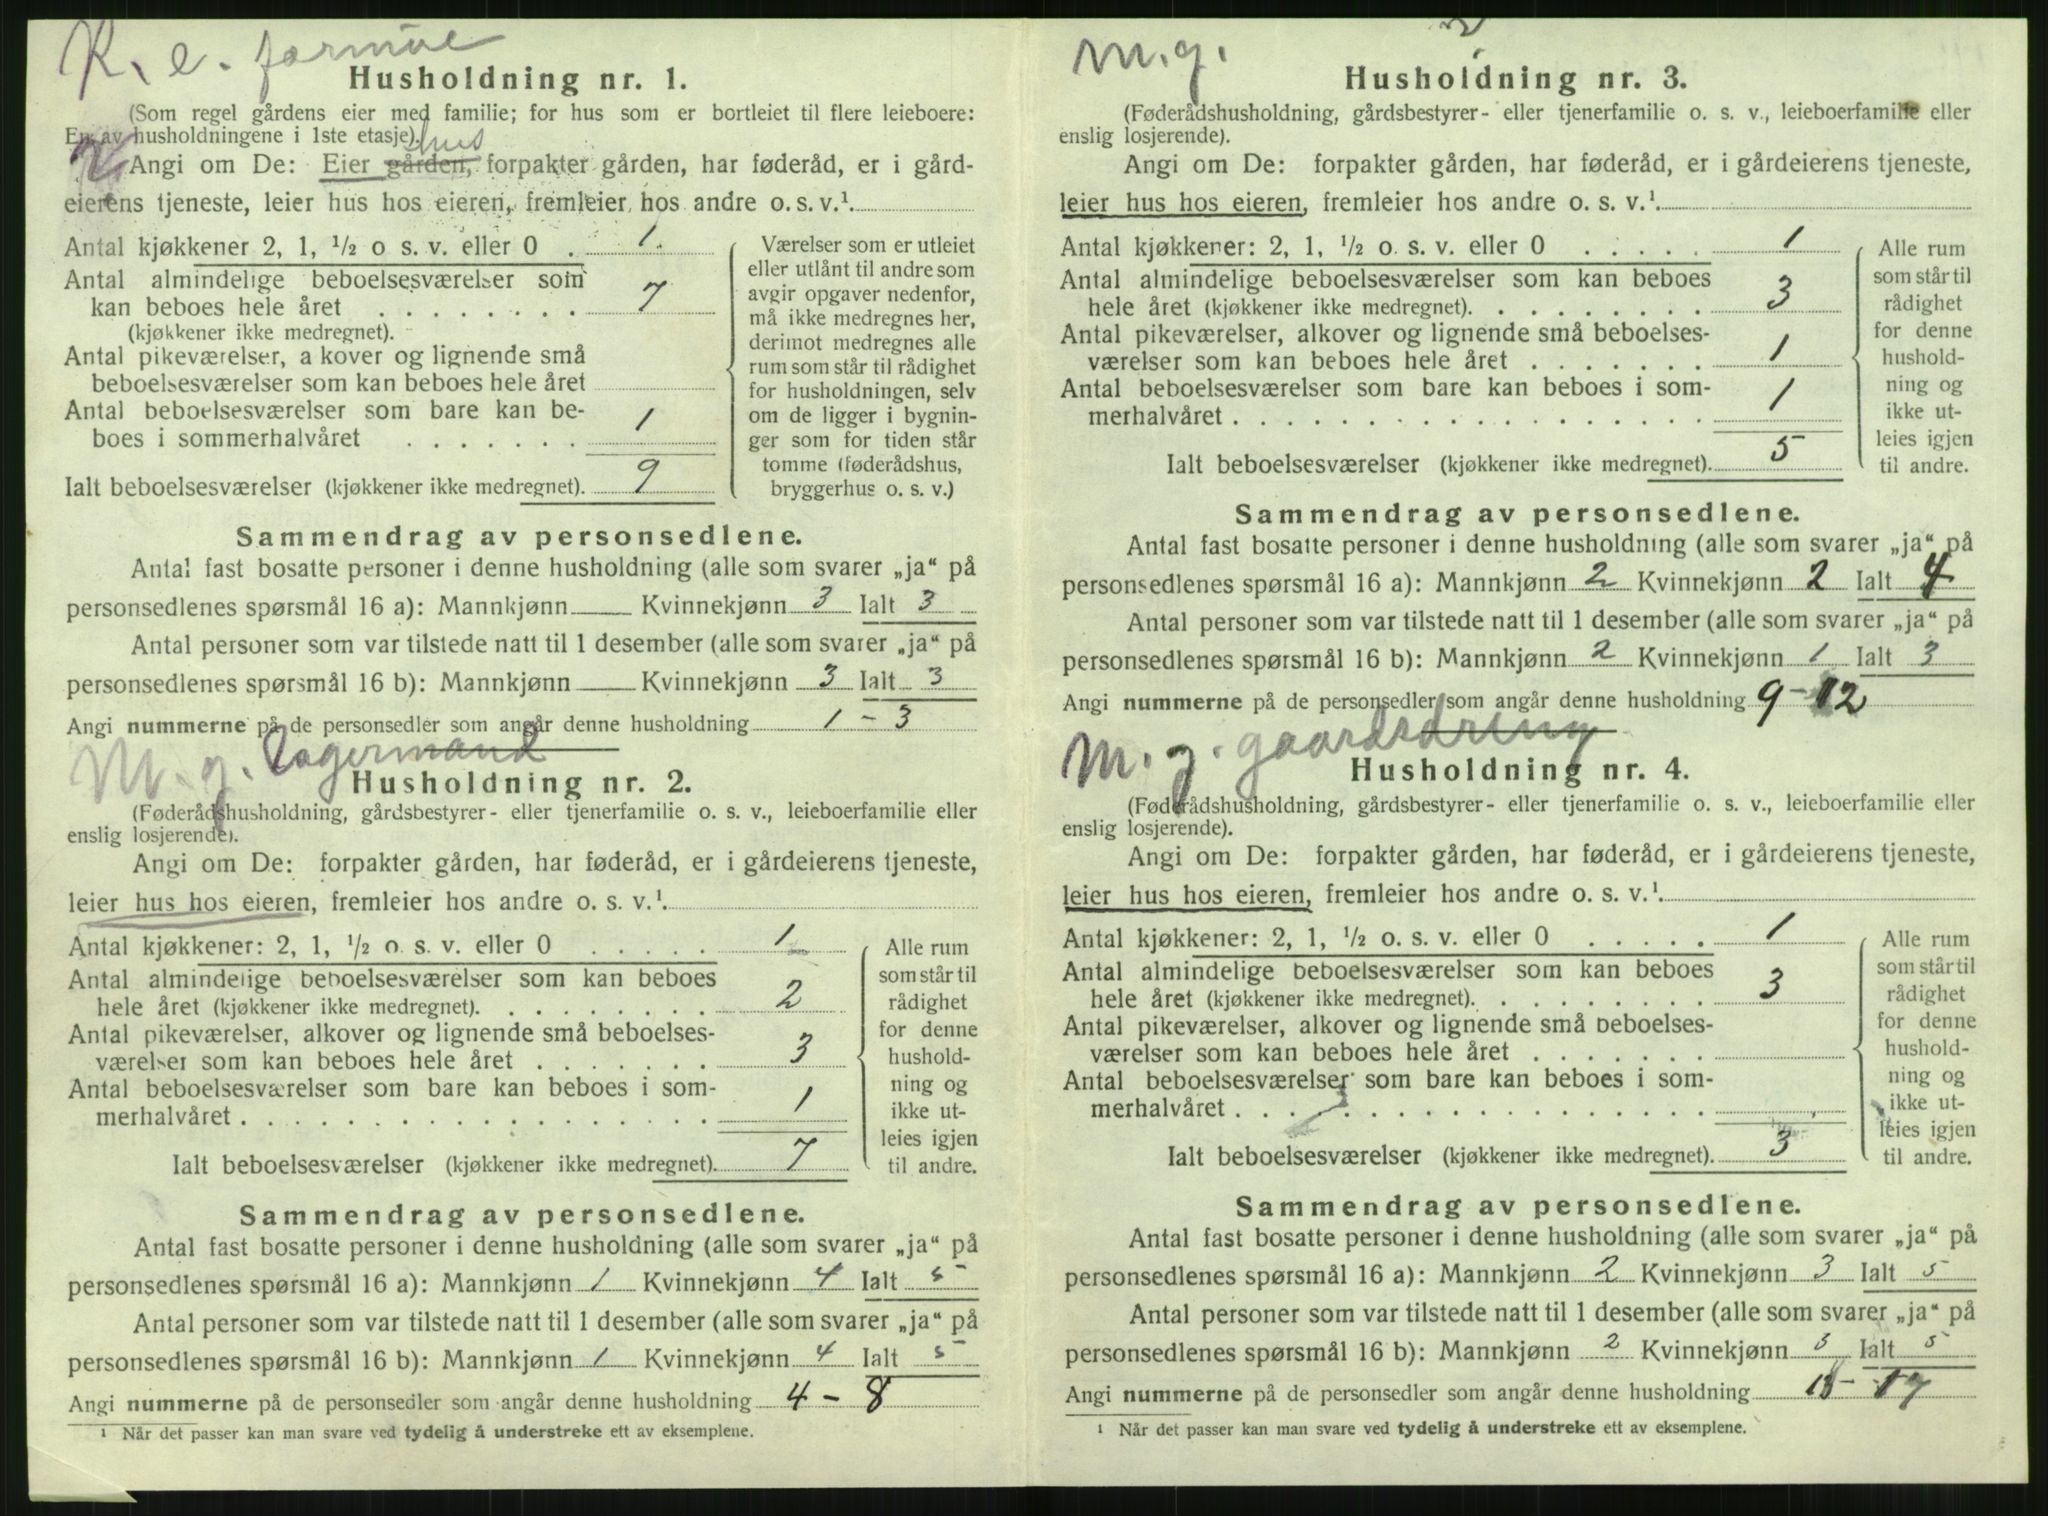 K. e. formue
Husholdning nr. 1.
(Som regel gårdens eier med familie; for hus som er bortleiet til flere leieboere:
En av husholdningene i 1ste etasje).
hus
Angi om De: Eier gården, forpakter gården, har føderåd, er i gård-
eierens tjeneste, leier hus hos eieren, fremleier hos andre o. s. v.¹
Antal kjøkkener 2, 1, ½ o s. v. eller 0 . 1
Antal almindelige beboelsesværelser som
kan beboes hele året . . . . . . . . 7
(kjøkkener ikke medregnet).
Antal pikeværelser, a kover og lignende små
beboelsesværelser som kan beboes hele året
Antal beboelsesværelser som bare kan be-
boes i sommerhalvåret . . . . . . . 1
Ialt beboelsesværelser (kjøkkener ikke medregnet). 9
Værelser som er utleiet
eller utlånt til andre som
avgir opgaver nedenfor,
må ikke medregnes her,
derimot medregnes alle
rum som står til rådighet
for husholdningen, selv
om de ligger i bygnin-
ger som for tiden står
tomme (føderådshus,
bryggerhus o. s. v.)
Sammendrag av personsedlene.
Antal fast bosatte personer i denne husholdning (alle som svarer „ja“ på
personsedlenes spørsmål 16 a): Mannkjønn — Kvinnekjønn 3 Ialt 3
Antal personer som var tilstede natt til 1 desember (alle som svarer „ja“ på
personsedlenes spørsmål 16 b): Mannkjønn — Kvinnekjønn 3 Ialt 3
Angi nummerne på de personsedler som angår denne husholdning 1 – 3
M. g. Lagermand
Husholdning nr. 2.
(Føderådshusholdning, gårdsbestyrer- eller tjenerfamilie o. s. v., leieboerfamilie eller
enslig losjerende).
Angi om De: forpakter gården, har føderåd, er i gårdeierens tjeneste,
leier hus hos eieren, fremleier hos andre o. s. v.¹
Antal kjøkkener: 2, 1, ½ o. s. v. eller 0 . . . . . 1
Antal almindelige beboelsesværelser som kan beboes
hele året (kjøkkener ikke medregnet). . . . . . . . . 2
Antal pikeværelser, alkover og lignende små beboelses-
værelser som kan beboes hele året . . . . . . . 3
Antal beboelsesværelser som bare kan beboes i som-
merhalvåret . . . . . . . . . . . . . . . . . . 1
Ialt beboelsesværelser (kjøkkener ikke medregnet). 7
Alle rum
som står til
rådighet
for denne
hushold-
ning og
ikke ut-
leies igjen
til andre.
Sammendrag av personsedlene.
Antal fast bosatte personer i denne husholdning (alle som svarer „ja“ på
personsedlenes spørsmål 16 a): Mannkjønn 1 Kvinnekjønn 4 Ialt 5
Antal personer som var tilstede natt til 1 desember (alle som svarer „ja“ på
personsedlenes spørsmål 16 b): Mannkjønn 1 Kvinnekjønn 4 Ialt 5
Angi nummerne på de personsedler som angår denne husholdning 4 – 8
¹ Når det passer kan man svare ved tydelig å understreke ett av eksemplene.
M. g.
Husholdning nr. 3.
(Føderådshusholdning, gårdsbestyrer- eller tjenerfamilie o. s. v., leieboerfamilie eller
enslig losjerende).
Angi om De: forpakter gården, har føderåd, er i gårdeierens tjeneste,
leier hus hos eieren, fremleier hos andre o. s. v.¹
Antal kjøkkener: 2, 1, ½ o. s. v. eller 0 . . . . . 1
Antal almindelige beboelsesværelser som kan beboes
hele året (kjøkkener ikke medregnet). . . . . . . . . 3
Antal pikeværelser, alkover og lignende små beboelses-
værelser som kan beboes hele året . . . . . . . 1
Antal beboelsesværelser som bare kan beboes i som-
merhalvåret . . . . . . . . . . . . . . . . . . 1
Ialt beboelsesværelser (kjøkkener ikke medregnet). 5
Alle rum
som står til
rådighet
for denne
hushold-
ning og
ikke ut-
leies igjen
til andre.
Sammendrag av personsedlene.
Antal fast bosatte personer i denne husholdning (alle som svarer „ja“ på
personsedlenes spørsmål 16 a): Mannkjønn 2 Kvinnekjønn 2 Ialt 4
Antal personer som var tilstede natt til 1 desember (alle som svarer „ja“ på
personsedlenes spørsmål 16 b): Mannkjønn 2 Kvinnekjønn 1 Ialt 3
Angi nummerne på de personsedler som angår denne husholdning 9 – 12
M. g. gaardsdreng
Husholdning nr. 4.
(Føderådshusholdning, gårdsbestyrer- eller tjenerfamilie o. s. v., leieboerfamilie eller
enslig losjerende).
Angi om De: forpakter gården, har føderåd, er i gårdeierens tjeneste,
leier hus hos eieren, fremleier hos andre o. s. v.¹
Antal kjøkkener: 2, 1, ½ o. s. v. eller 0 . . . . . 1
Antal almindelige beboelsesværelser som kan beboes
hele året (kjøkkener ikke medregnet). . . . . . . . . 3
Antal pikeværelser, alkover og lignende små beboelses-
værelser som kan beboes hele året . . . . . . .
Antal beboelsesværelser som bare kan beboes i som-
merhalvåret . . . . . . . . . . . . . . . . . .
Ialt beboelsesværelser (kjøkkener ikke medregnet). 3
Alle rum
som står til
rådighet
for denne
hushold-
ning og
ikke ut-
leies igjen
til andre.
Sammendrag av personsedlene.
Antal fast bosatte personer i denne husholdning (alle som svarer „ja“ på
personsedlenes spørsmål 16 a): Mannkjønn 2 Kvinnekjønn 3 Ialt 5
Antal personer som var tilstede natt til 1 desember (alle som svarer „ja“ på
personsedlenes spørsmål 16 b): Mannkjønn 2 Kvinnekjønn 3 Ialt 5
Angi nummerne på de personsedler som angår denne husholdning 13 – 17
¹ Når det passer kan man svare ved tydelig å understreke ett av eksemplene.